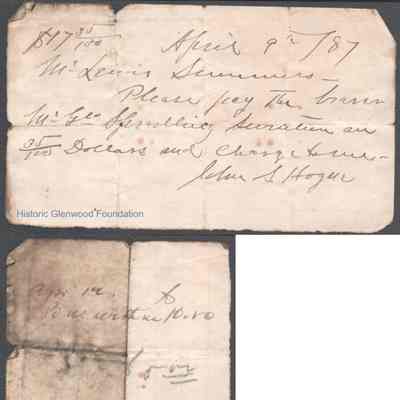 $17 95/100 April 9th /87
Mr Lewis Summers
Please pay the barer
Mr Geo Spradling Seventeen an
95/100 Dollars and charge to me
John S Hogue
Historic Glenwood Foundation
Apr 12
10.00